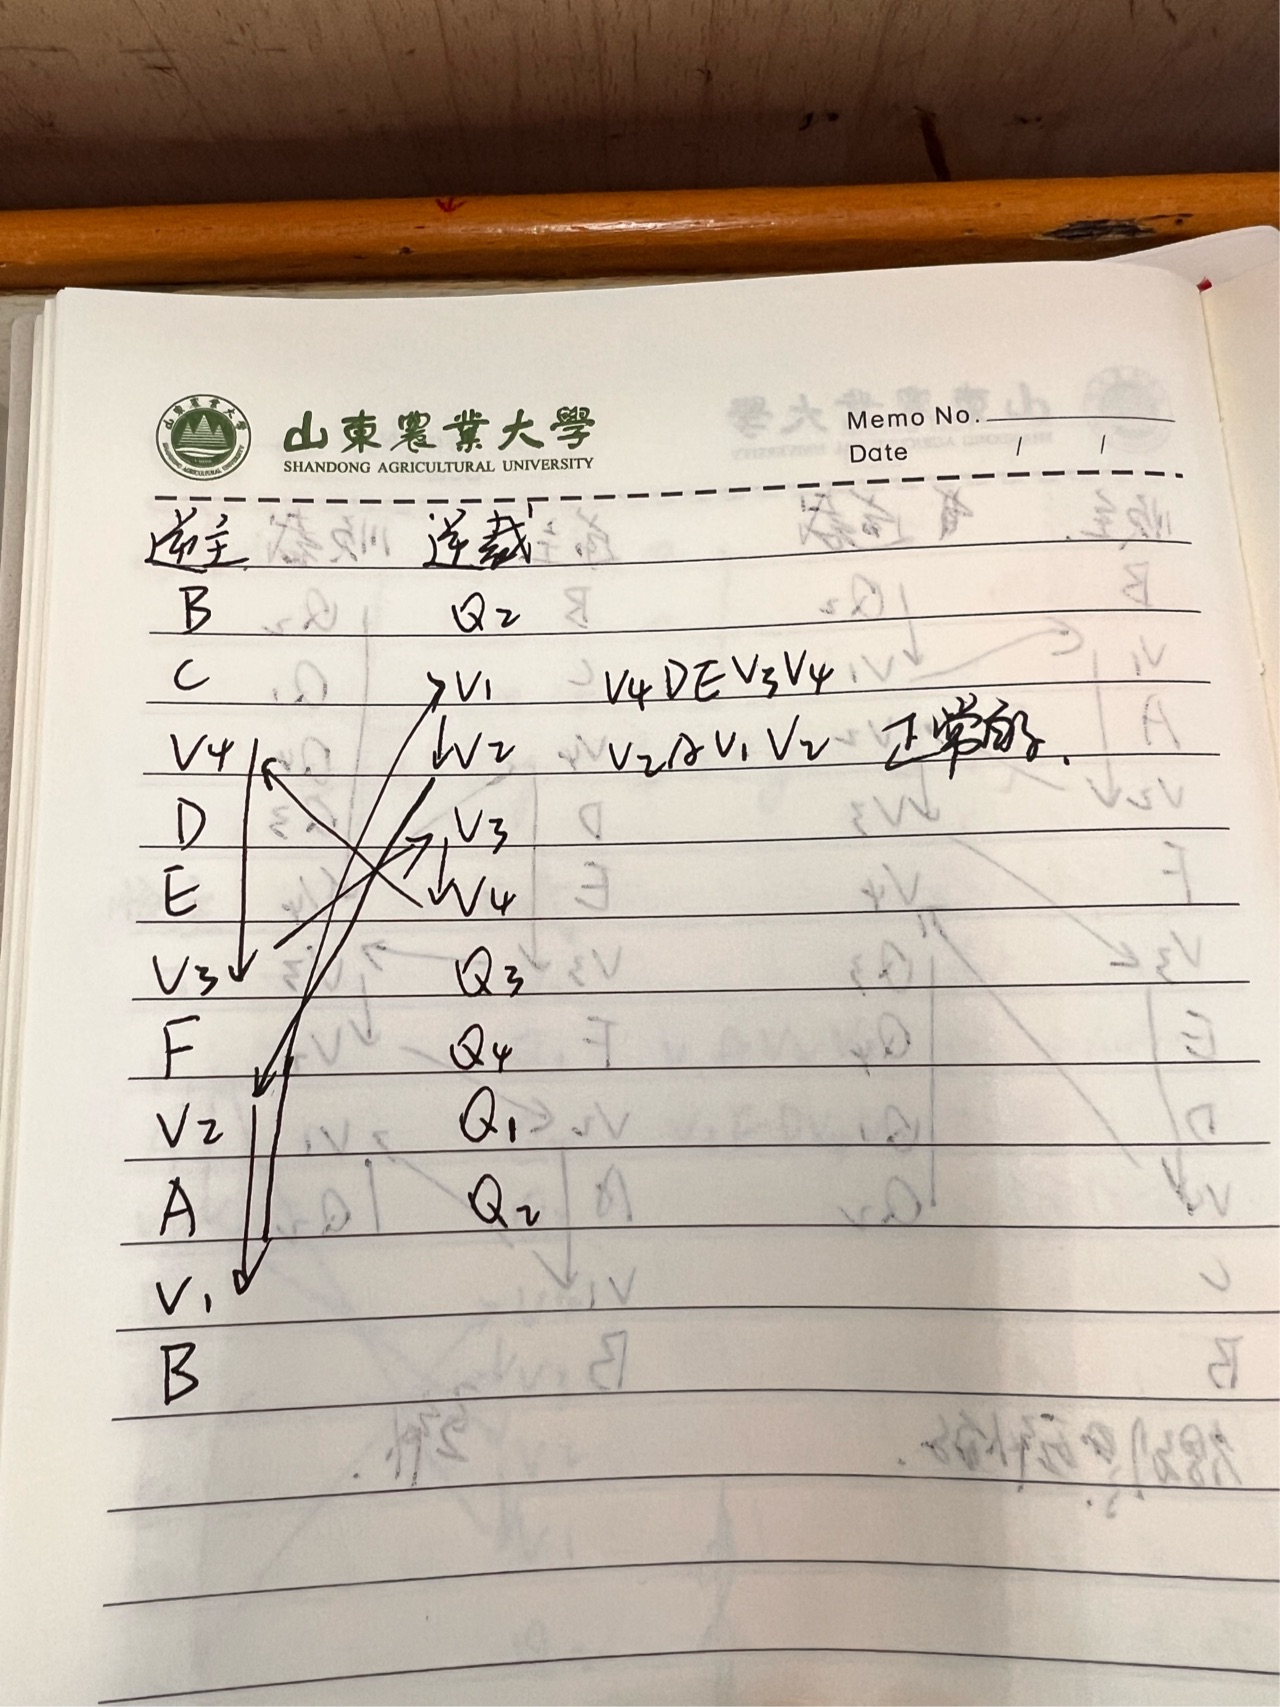 山東農業大學
SHANDONG AGRICULTURAL UNIVERSITY
Memo No.
Date / /
逆主 逆裁
B Q2
C V1 V4DEV3V4
V4 V2 V2AV1V2 正常的.
D V3
E V4
V3 Q3
F Q4
V2 Q1
A Q2
V1
B